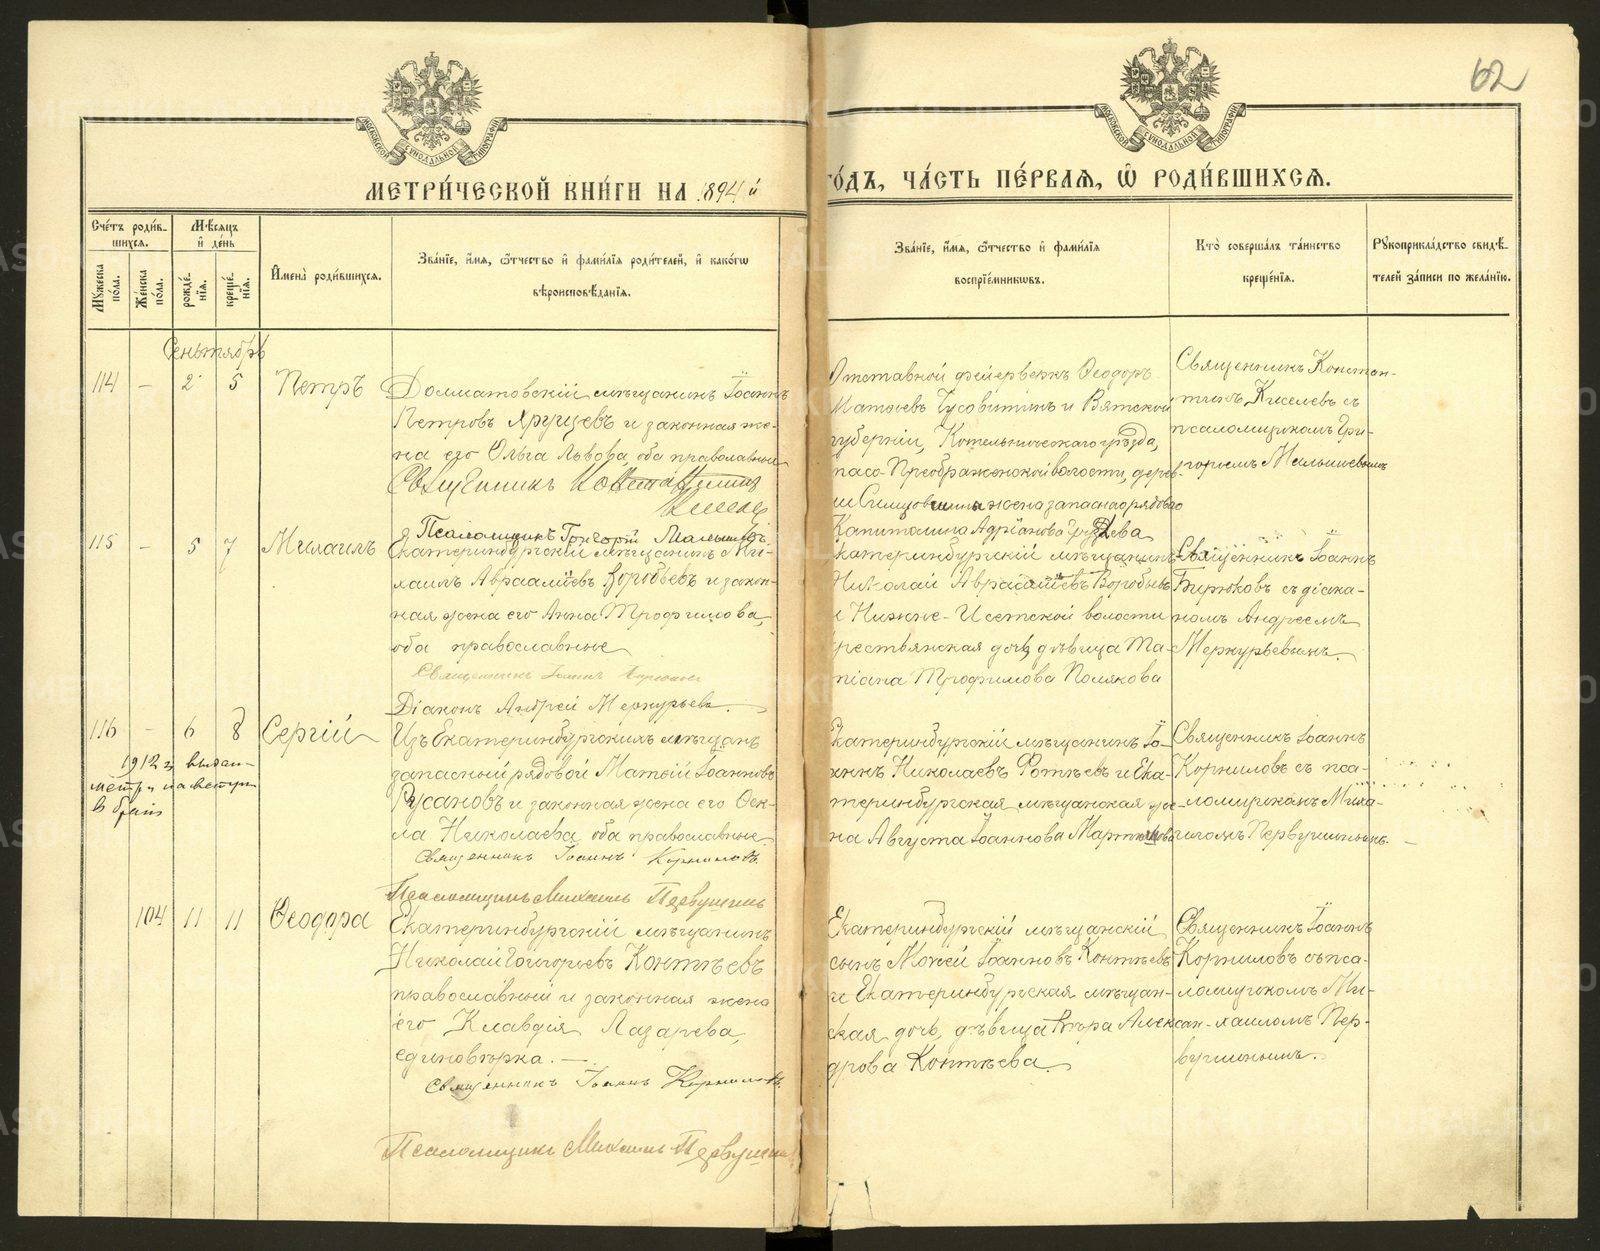 62
МЕТРИ́ЧЕСКОЙ КНИ́ГИ НА 1894 й
ГО́ДЪ, ЧА́СТЬ ПЕ́РВАѦ, Ѡ҆ РОДИ́ВШИХСѦ.
Сче́тъ роди́в-
шихся.
Мѣ́сяцъ
и҆ де́нь
Мꙋ́жеска по́ла.
Же́нска по́ла.
рожде́-
нїя.
креще́-
нїя.
И҆мена̀ роди́вшихся.
Зва́нїе, и҆́мя, ѻ҆́тчество и҆ фами́лїя роди́телей, и҆ како́гѡ
вѣроисповѣ́данїя.
Зва́нїе, и҆́мя, ѻ҆́тчество и҆ фами́лїя
воспрїе́мникѡвъ.
Кто̀ соверша́лъ та́инство
креще́нїя.
Рꙋкоприкла́дство свидѣ́-
телей за́писи по жела́нїю.
Сентябрь
114 — 2 5 Петръ
Долматовскій мѣщанинъ Іоаннъ
Петровъ Ярущевъ и законная же-
на его Ольга Львова, оба православные
Священникъ Константинъ
Киселев
Псаломщикъ Григорій Малышевъ
Отставной фейерверкъ Ѳеодоръ
Матвѣевъ Чусовитинъ и Вятской
губерніи, Котельническаго уѣзда,
Спасо-Преображенской волости, дерев-
ни жена запаснаго рядоваго
Капитолина Адріанова
Священникъ Констан-
тинъ Киселевъ съ
псаломщикомъ Гри-
горіемъ Малышевымъ
115 — 5 7 Михаилъ
Екатеринбургскій мѣщанинъ Ми-
хаилъ Авраамiевъ Воробьевъ и закон-
ная жена его Анна Трофимова,
оба православные
Священникъ Іоаннъ Бирюковъ
Діаконъ Андрей Меркурьевъ.
Екатеринбургскій мѣщанинъ
Николай Авраамiевъ Воробьевъ
и Нижне-Исетской волости
крестьянская дочь, дѣвица Та-
тіана Трофимова Полякова
Священникъ Іоаннъ
Бирюковъ съ діако-
номъ Андреемъ
Меркурьевымъ.
116 — 6 8 Сергій
1912 г. выдан
метр. на вступ.
в брак
Изъ Екатеринбургскихъ мѣщанъ
запасный рядовой Матѳій Іоанновъ
Русановъ и законная жена его Ѳек-
ла Николаева, оба православные
Священникъ Іоаннъ Корниловъ.
Псаломщикъ Михаилъ Первушинъ
Екатеринбургскій мѣщанинъ Іо-
аннъ Николаевъ Фотѣевъ и Ека-
теринбургская мѣщанская же-
на Августа Іоаннова Мартьянова
Священникъ Іоаннъ
Корниловъ съ пса-
ломщикомъ Миха-
иломъ Первушинымъ.
104 11 11 Ѳеодора
Екатеринбургскій мѣщанинъ
Николай Григорьевъ Контѣевъ
православный и законная жена
его Клавдія Лазарева,
единовѣрка. —
Священникъ Іоаннъ Корниловъ.
Псаломщикъ Михаилъ Первушинъ
Екатеринбургскій мѣщанскій
сынъ Моисей Іоанновъ Контѣевъ
и Екатеринбургская мѣщан-
ская дочь, дѣвица Вѣра Алексан-
дрова Контѣева
Священникъ Іоаннъ
Корниловъ съ пса-
ломщикомъ Ми-
хаиломъ Пер-
вушинымъ.